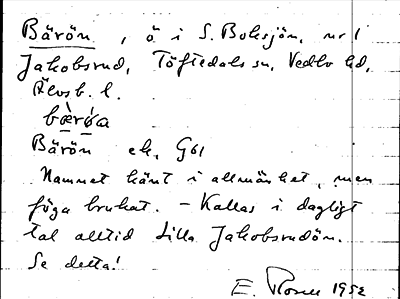 Bärön, ö i S. Boksjön, nr 1
Jakobsrud, Töftedals sn, Vedbo hd,
Älvsb. l.
bæ̀rø̀a
Bärön ek, G61
Namnet känt i allmänhet, men
föga brukat. – Kallas i dagligt
tal alltid Lilla Jakobsrudön.
Se detta!
E. Rosell 1952